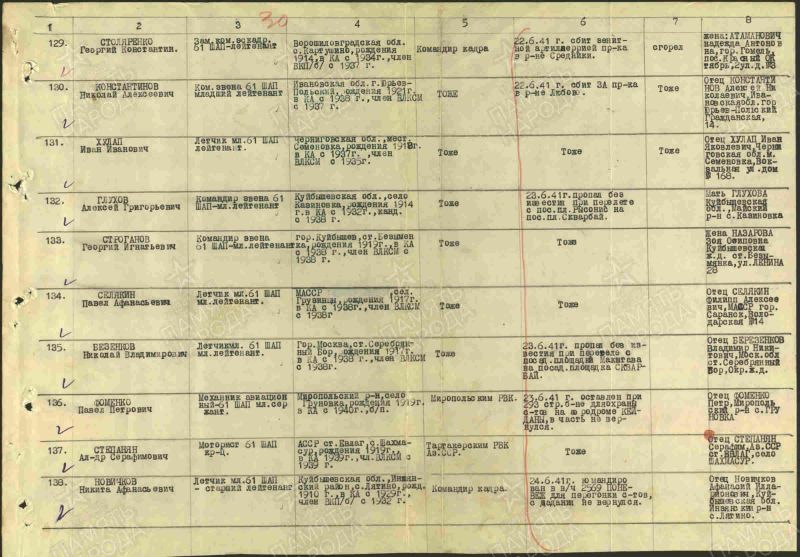 30
1 2 3 4 5 6 7 8
129. СТОЛЯРЕНКО
Георгий Константин.
Зам.ком.эскадр.
61 ШАП-лейтенант
Ворошиловградская обл.
с.Картушино, рождения
1914, в КА с 1934г., член
ВКП/б/ с 1937 г.
Командир кадра
22.6.41 г. сбит зенит-
ной артиллерией пр-ка
в р-не Средники.
сгорел
жена: АТАМАНОВИЧ
надежда Антонов
на, гор. Гомель,
пос. Красный Ок
тябрь, 2ул. д. №3
130. КОНСТАНТИНОВ
Николай Алексеевич
Ком.звена 61 ШАП
младший лейтенант
Ивановская обл.г.Юрьев-
Польский, рождения 1921г.
в КА с 1938 г., член ВЛКСМ
с 1937 г.
ТОЖЕ
22.6.41 г. сбит ЗА пр-ка
в р-не Любово.
Тоже
Отец КОНСТАНТИ
НОВ Алексей Ни
колаевич, Ива-
новская обл. гор
Юрьев-Польский
Гражданская,
14.
131. ХУЛАП
Иван Иванович
Летчик мл.61 ШАП
лейтенант.
Черниговская обл., мест.
Семеновка, рождения 1918г.
в КА с 1937г., член
ВЛКСМ с 1935г.
Тоже
Тоже
Тоже
Отец ХУЛАП Иван
Яковлевич, Черни
говская обл. м.
Семеновка, Вок-
зальная ул. дом
№ 168.
132. ГЛУХОВ
Алексей Григорьевич
Командир звена 61
ШАП-мл.лейтенант
Куйбышевская обл., село
Казиновка, рождения 1914
г. в КА с 1932г., канд.
с 1938 г.
Тоже
23.6.41г. пропал без
известия при перелете
с пос.пл. Рысонис на
пос.пл. Скварбай.
Мать ГЛУХОВА
Куйбышевская
обл., Майский
р-н с. Казиновка
133. СТРОГАНОВ
Георгий Игнатьевич
Командир звена
61 ШАП-мл.лейтенант
гор. Куйбышев, ст. Безымен
ка, рождения 1919г., в КА
с 1938 г., член ВЛКСМ
с 1938 г.
Тоже
Тоже
Жена НАЗАРОВА
Зоя Осиповна
Куйбышевская
ж.д. ст. Безы-
мянка, ул. ЛЕНИНА
28
134. СЕЛЯКИН
Павел Афанасьевич
Летчик мл. 61 ШАП
мл.лейтенант.
МАССР, сел.
Грузинцы, рождения 1917г.
в КА с 1938г., член ВЛКСМ
с 1938г
Тоже
Тоже
Отец СЕЛЯКИН
Филипп Алексее
вич, МАССР гор.
Саранск, Воло-
дарская №14
135. БЕЗЕНКОВ
Николай Владимирович
Летчик мл. 61 ШАП
мл.лейтенант.
Гор. Москва, ст. Серебрян-
ный Бор, рождения 1917г.
в КА с 1938г., член ВЛКСМ
с 1938г.
Тоже
23.6.41г. пропал без из-
вестия при перелете с
посад. площадки
на посад. площадка СКВАР-
БАЙ.
Отец БЕРЕЗЕНКОВ
Владимир Ники-
тович, Моск. обл
ст. Серебрянный
Бор, Окр.ж.д.
136. ФОМЕНКО
Павел Петрович
Механник авиацион
ный-61 ШАП мл.сер
жант.
Миропольский р-н, село
Груновка, рождения 1919г.
в КА с 1940г., б/п.
Миропольским РВК.
23.6.41 г. оставлен при
293 стр.б-не для охраны
с-тов на аэродроме КЕЙ-
ДАНЫ, в часть не вер-
нулся.
Отец ФОМЕНКО
Петр, Мирополь
ский р-н с. ГРУ
НОВКА
137. СТЕПАНЯН
Ал-др Серафимович
Моторист 61 ШАП
кр-ц.
АССР ст. Евлаг, с. Шахма-
сур, рождения 1919г.,
в КА 1939г., чл. ВЛКСМ с
1939 г.
Тартакерским РВК
Аз.ССР.
Тоже
Отец СТЕПАНЯН
Серафим, Аз.ССР
ст. ЕВЛАГ, село
ШАХМАСУР.
138. НОВИЧКОВ
Никита Афанасьевич
Летчик мл. 61 ШАП
- старший лейтенант
Куйбышевская обл., Инзян-
ский район, с. Лятино, рожд.
1910 г., в КА с 1929г.,
член ВКП/б/ с 1932 г.
Командир кадра.
24.6.41г. командиро
ван в в/ч 2569 ПОНЕ-
ВЕЖ для перегонки с-тов,
с задания не вернулся.
Отец Новичков
Афанасий Илла-
рионович, Куй-
бышевская обл.
Инзянский р-н
с. Лятино.